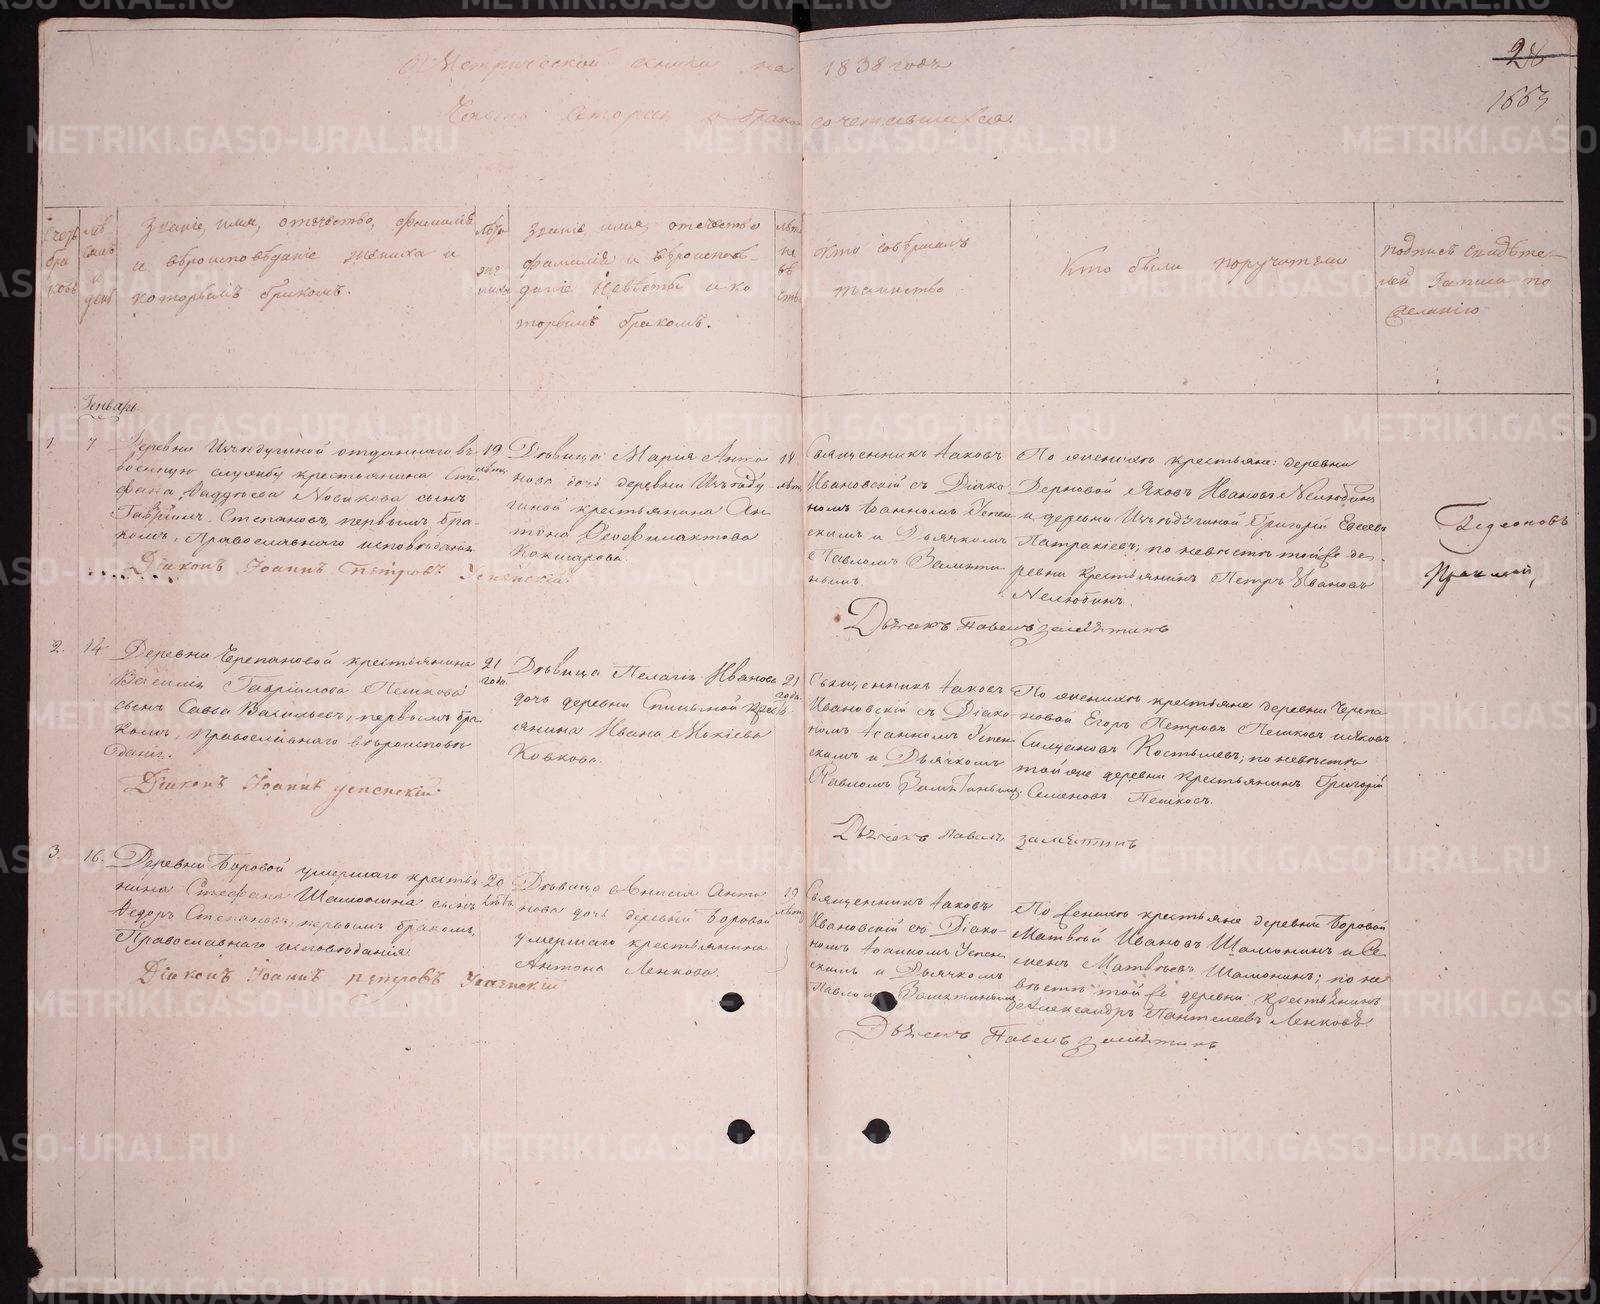 Метрической книги на 1838 годъ
Часть вторая о бракосочетавшихся.
28
1663
Счетъ браковъ
Мѣсяцъ и день
Званіе, имя, отечество, фамилія
и вѣроисповѣданіе жениха и
которымъ бракомъ.
Лѣта жениха
Званіе, имя, отечество
фамилія и вѣроисповѣ-
даніе Невѣсты и ко
торымъ бракомъ.
Лѣта невѣсты
Кто совѣршалъ
таинство
Кто были поручители
подпись свидѣте-
лей записи по
желанію
Генварь
1.
7
Деревни отданнаго въ
военную службу крестьянина Сте
фана Фаддѣева Новикова сынъ
Гавріилъ Степановъ, первымъ бра-
комъ, Православнаго исповѣданія
Діаконъ Іоаннъ Петровъ Успенскій
19
Дѣвица Марія Анто
нова дочь деревни
гиной крестьянина Ан
тона Феофилактова
Кокшарова.
18
лѣтъ
Священникъ Іаковъ
Ивановскій съ Діако
номъ Іоанномъ Успен
скимъ и Дьячкомъ
Павломъ Замяти
нымъ.
По женихѣ крестьяне: деревни
Яковъ Ивановъ Нелюбинъ
и деревни Григорій Евсеевъ
Патракіевъ; по невѣстѣ той же де
ревни крестьянинъ Петръ Ивановъ
Нелюбинъ.
Дьячокъ Павелъ Замятинъ
2.
14
Деревни Черепановой крестьянина
Василія Гавріилова Пешкова
сынъ Савва Васильевъ, первымъ бра
комъ, Православнаго вѣроисповѣ
данія.
Діаконъ Іоаннъ Успенскій
21
года
Дѣвица Пелагія Иванова
дочь деревни крестъ
янина Ивана Мокіева
Ковкова.
21
года
Священникъ Іаковъ
Ивановскій съ Діако
номъ Іоанномъ Успен
скимъ и Дьячкомъ
Павломъ Замятинымъ
По женихѣ крестьяне деревни Черепа
новой Егоръ Петровъ Пешковъ и Яковъ
Костылевъ; по невѣстѣ
той же деревни крестьянинъ Григорій
Семеновъ Пешковъ.
Дьячокъ Павелъ Замятинъ
3.
16.
Деревни Боровой умершаго крестья
нина Стефана Шамонина сынъ
Ѳедоръ Степановъ, первымъ бракомъ,
Православнаго исповѣданія.
Діаконъ Іоаннъ Петровъ Успенскій
20
лѣтъ
Дѣвица Анисія Анто
нова дочь деревни Боровой
умершаго крестьянина
Антона Ленкова.
19
лѣтъ
Священникъ Іаковъ
Ивановскій съ Діако-
номъ Іоанномъ Успен
скимъ и Дьячкомъ
Павломъ Замятинымъ
По женихѣ крестьяне деревни Боровой
Матвѣй Ивановъ Шамонинъ и Се
менъ Матвѣевъ Шамонинъ; по не
вѣстѣ той же деревни крестьянинъ
Александръ Пантелеевъ Ленковъ
Дьячокъ Павелъ Замятинъ
METRIKI.GASO-URAL.RU